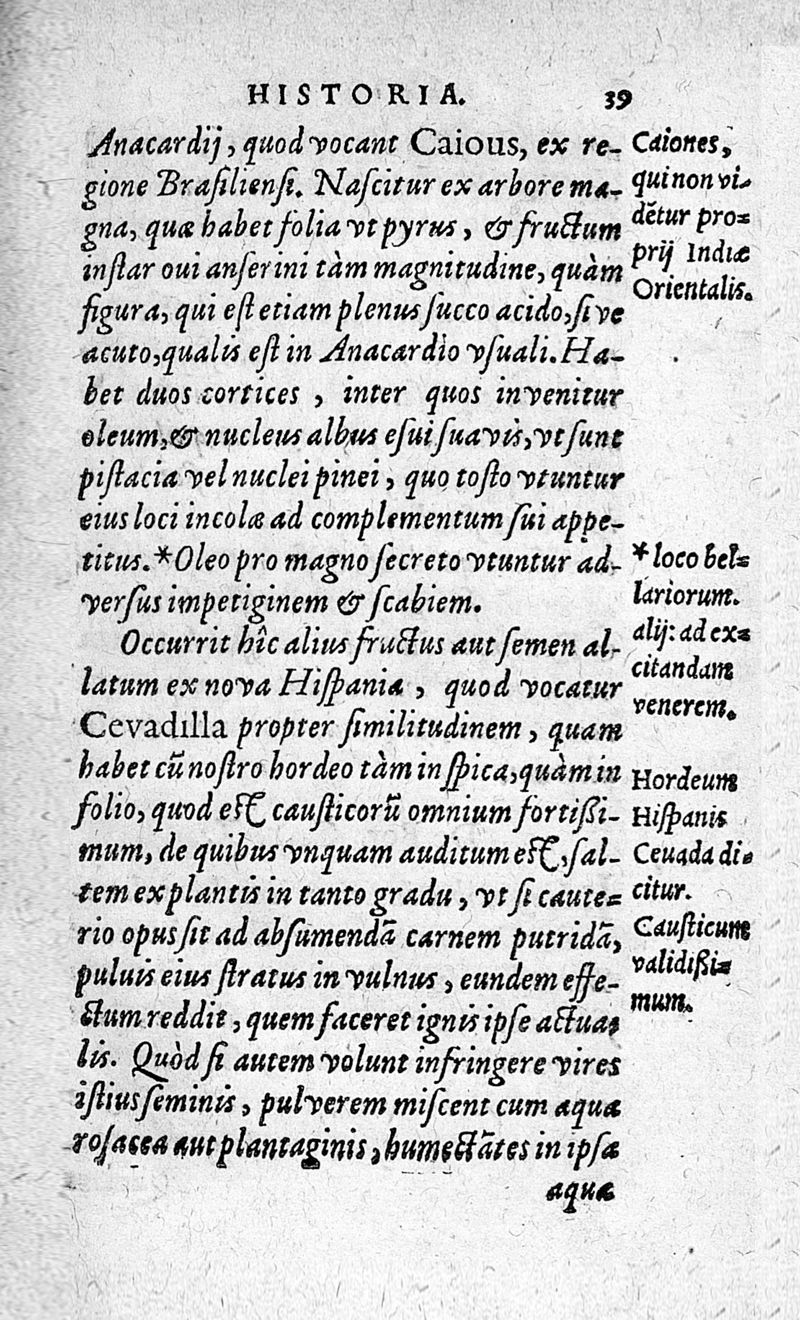 HISTORIA. 39
Anacardij, quod vocant Caious, ex re-
gione Brasiliensi. Nascitur ex arbore ma-
gna, quæ habet folia vt pyrus, & fructum
instar oui anserini tàm magnitudine, quàm
figura, qui est etiam plenus succo acido, sive
acuto, qualis est in Anacardio vsuali. Ha-
bet duos cortices, inter quos invenitur
oleum, & nucleus albus esui suavis, vt sunt
pistacia vel nuclei pinei, quo tosto vtuntur
eius loci incolæ ad complementum sui appe-
titus. *Oleo pro magno secreto vtuntur ad-
versus impetiginem & scabiem.
Occurrit hîc alius fructus aut semen al-
latum ex nova Hispania, quod vocatur
Cevadilla propter similitudinem, quam
habet cũ nostro hordeo tàm in spica, quàm in
folio, quod est causticorũ omnium fortißi-
mum, de quibus vnquam auditum est, sal-
tem ex plantis in tanto gradu, vt si caute-
rio opus sit ad absumendã carnem putridã,
puluis eius stratus in vulnus, eundem effe-
ctum reddit, quem faceret ignis ipse actua-
lis. Quòd si autem volunt infringere vires
istius seminis, pulverem miscent cum aqua
rosacea aut plantaginis, humectãtes in ipsa
aqua
Caiones,
qui non vi-
dẽtur pro-
prij Indiæ
Orientalis.
* loco bel-
lariorum.
alij: ad ex-
citandam
venerem.
Hordeum
Hispanis
Ceuada di-
citur.
Causticum
validißi-
mum.